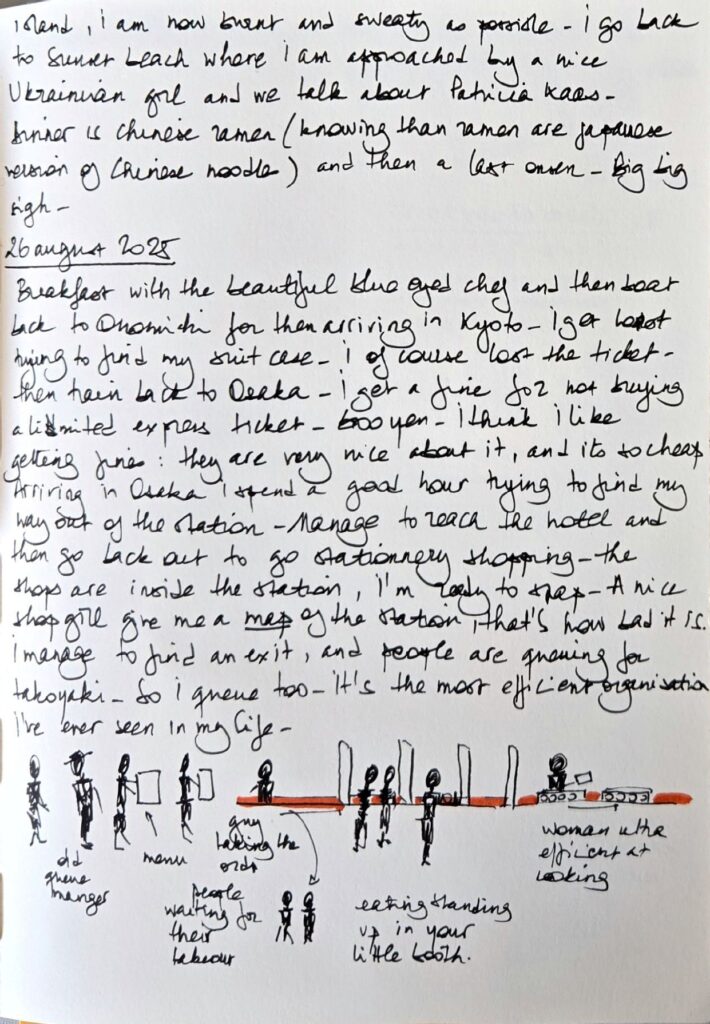 island, i am now burnt and sweaty as possible - i go back
to Sunset beach where i am approached by a nice
Ukrainian girl and we talk about Patricia Kaas -
Dinner is chinese ramen (knowing than ramen are japanese
version of Chinese noodle) and then a last onsen - Big big
sigh -
26 august 2025
Breakfast with the beautiful blue eyed chef and then boat
back to Onomichi for then arriving in Kyoto - i get lost
trying to find my suit case - i of course lost the ticket -
then train back to Osaka - i get a fine for not buying
a limited express ticket - 600 yen - i think i like
getting fines : they are very nice about it, and it's so cheap
Arriving in Osaka i spend a good hour trying to find my
way out of the station - Manage to reach the hotel and
then go back out to go stationnery shopping - the
shops are inside the station, i'm ready to snap - A nice
shop girl give me a map of the station, that's how bad it is.
i manage to find an exit, and people are queuing for
takoyaki - So i queue too - it's the most efficient organisation
i've ever seen in my life -
old
queue
manger
menu
guy
taking the
order
people
waiting for
their
takeout
eating standing
up in your
little booth.
woman ultra
efficient at
cooking